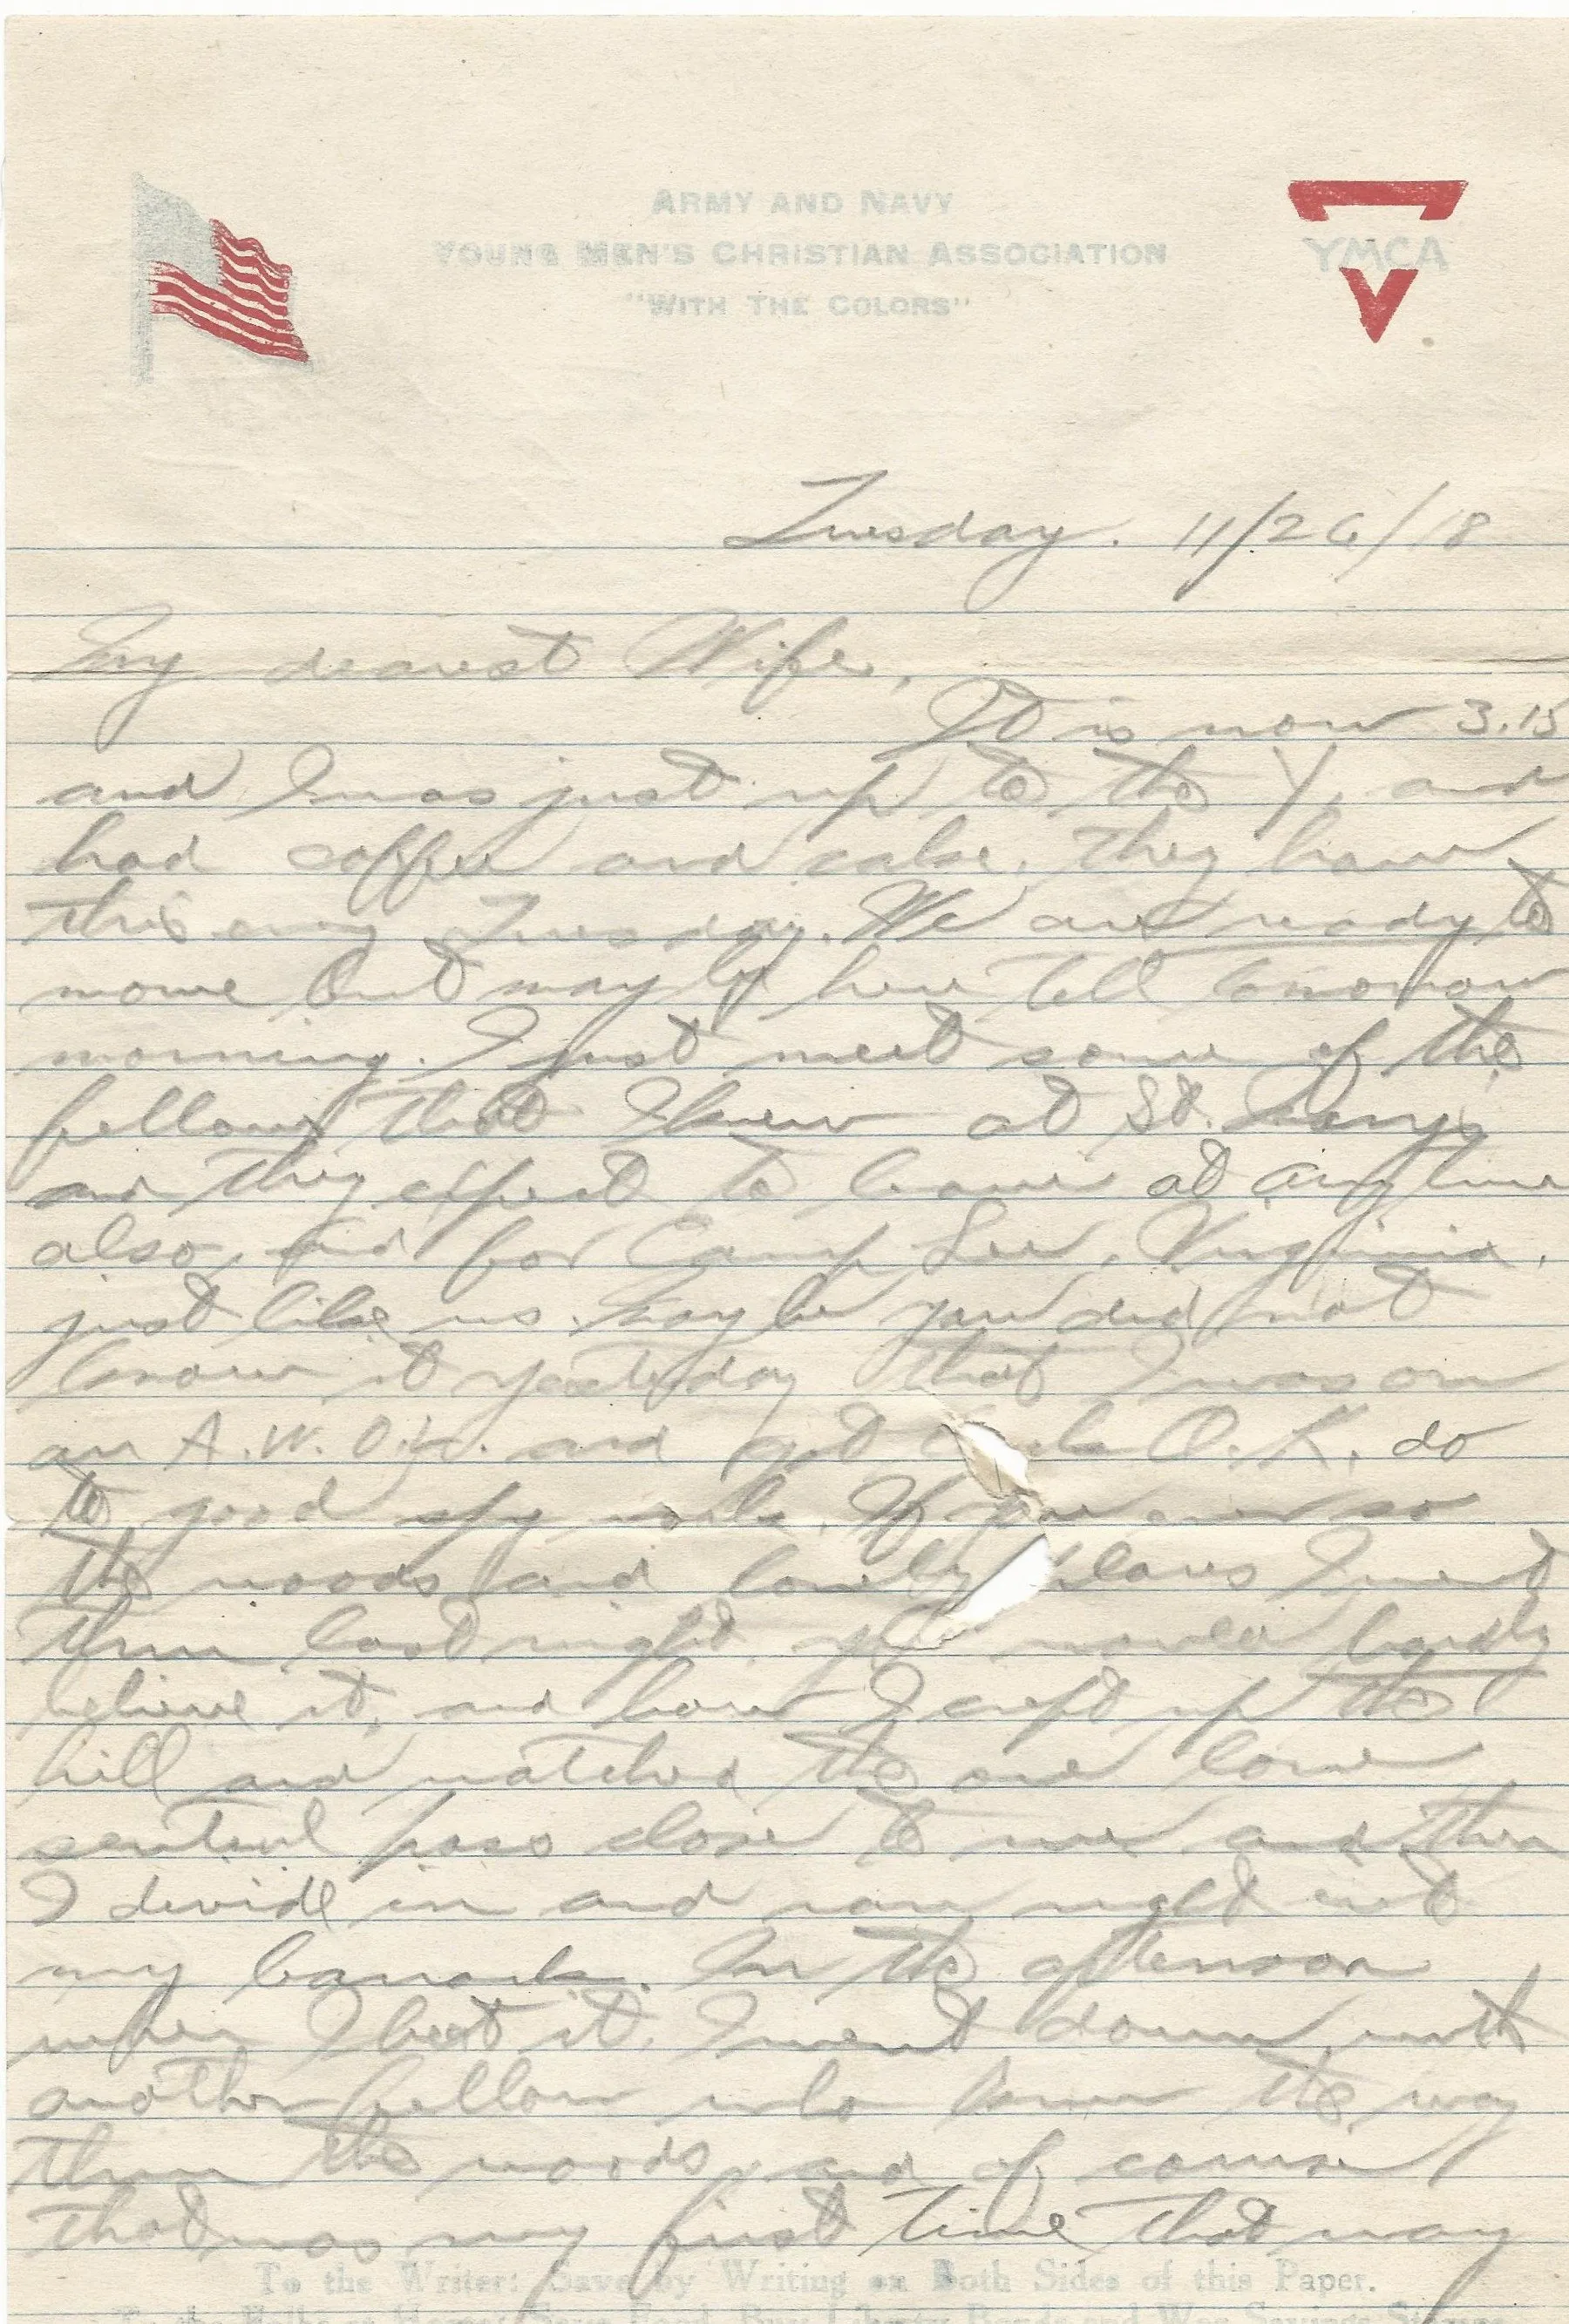 ARMY AND NAVY
YOUNG MEN'S CHRISTIAN ASSOCIATION
"WITH THE COLORS"
YMCA
Tuesday. 11/26/18
My dearest Wife,
It is now 3.15
and I was just up to the Y, and
had coffee and cake. They have
this every Tuesday. We are ready to
move but may be here till tomorrow
morning. I just meet some of the
fellows that I knew at St. Marys
and they expect to leave at any time
also, and for Camp Lee, Virginia,
just like us. May be you did not
know it yesterday that I was on
an A.W.O.L. and got O.K. do
to good spy work. If you ever so
the woods and lonely places I went
thru last night, would hardly
believe it, and how I crept up the
hill and watched the one lone
sentinel pass close to me and then
I divide in and ran right
my barracks. In the afternoon
when I beat it. I went down with
another fellow who knew the way
thru the woods, and of course
that was my first time that way
To the Writer: Save by Writing on Both Sides of this Paper.